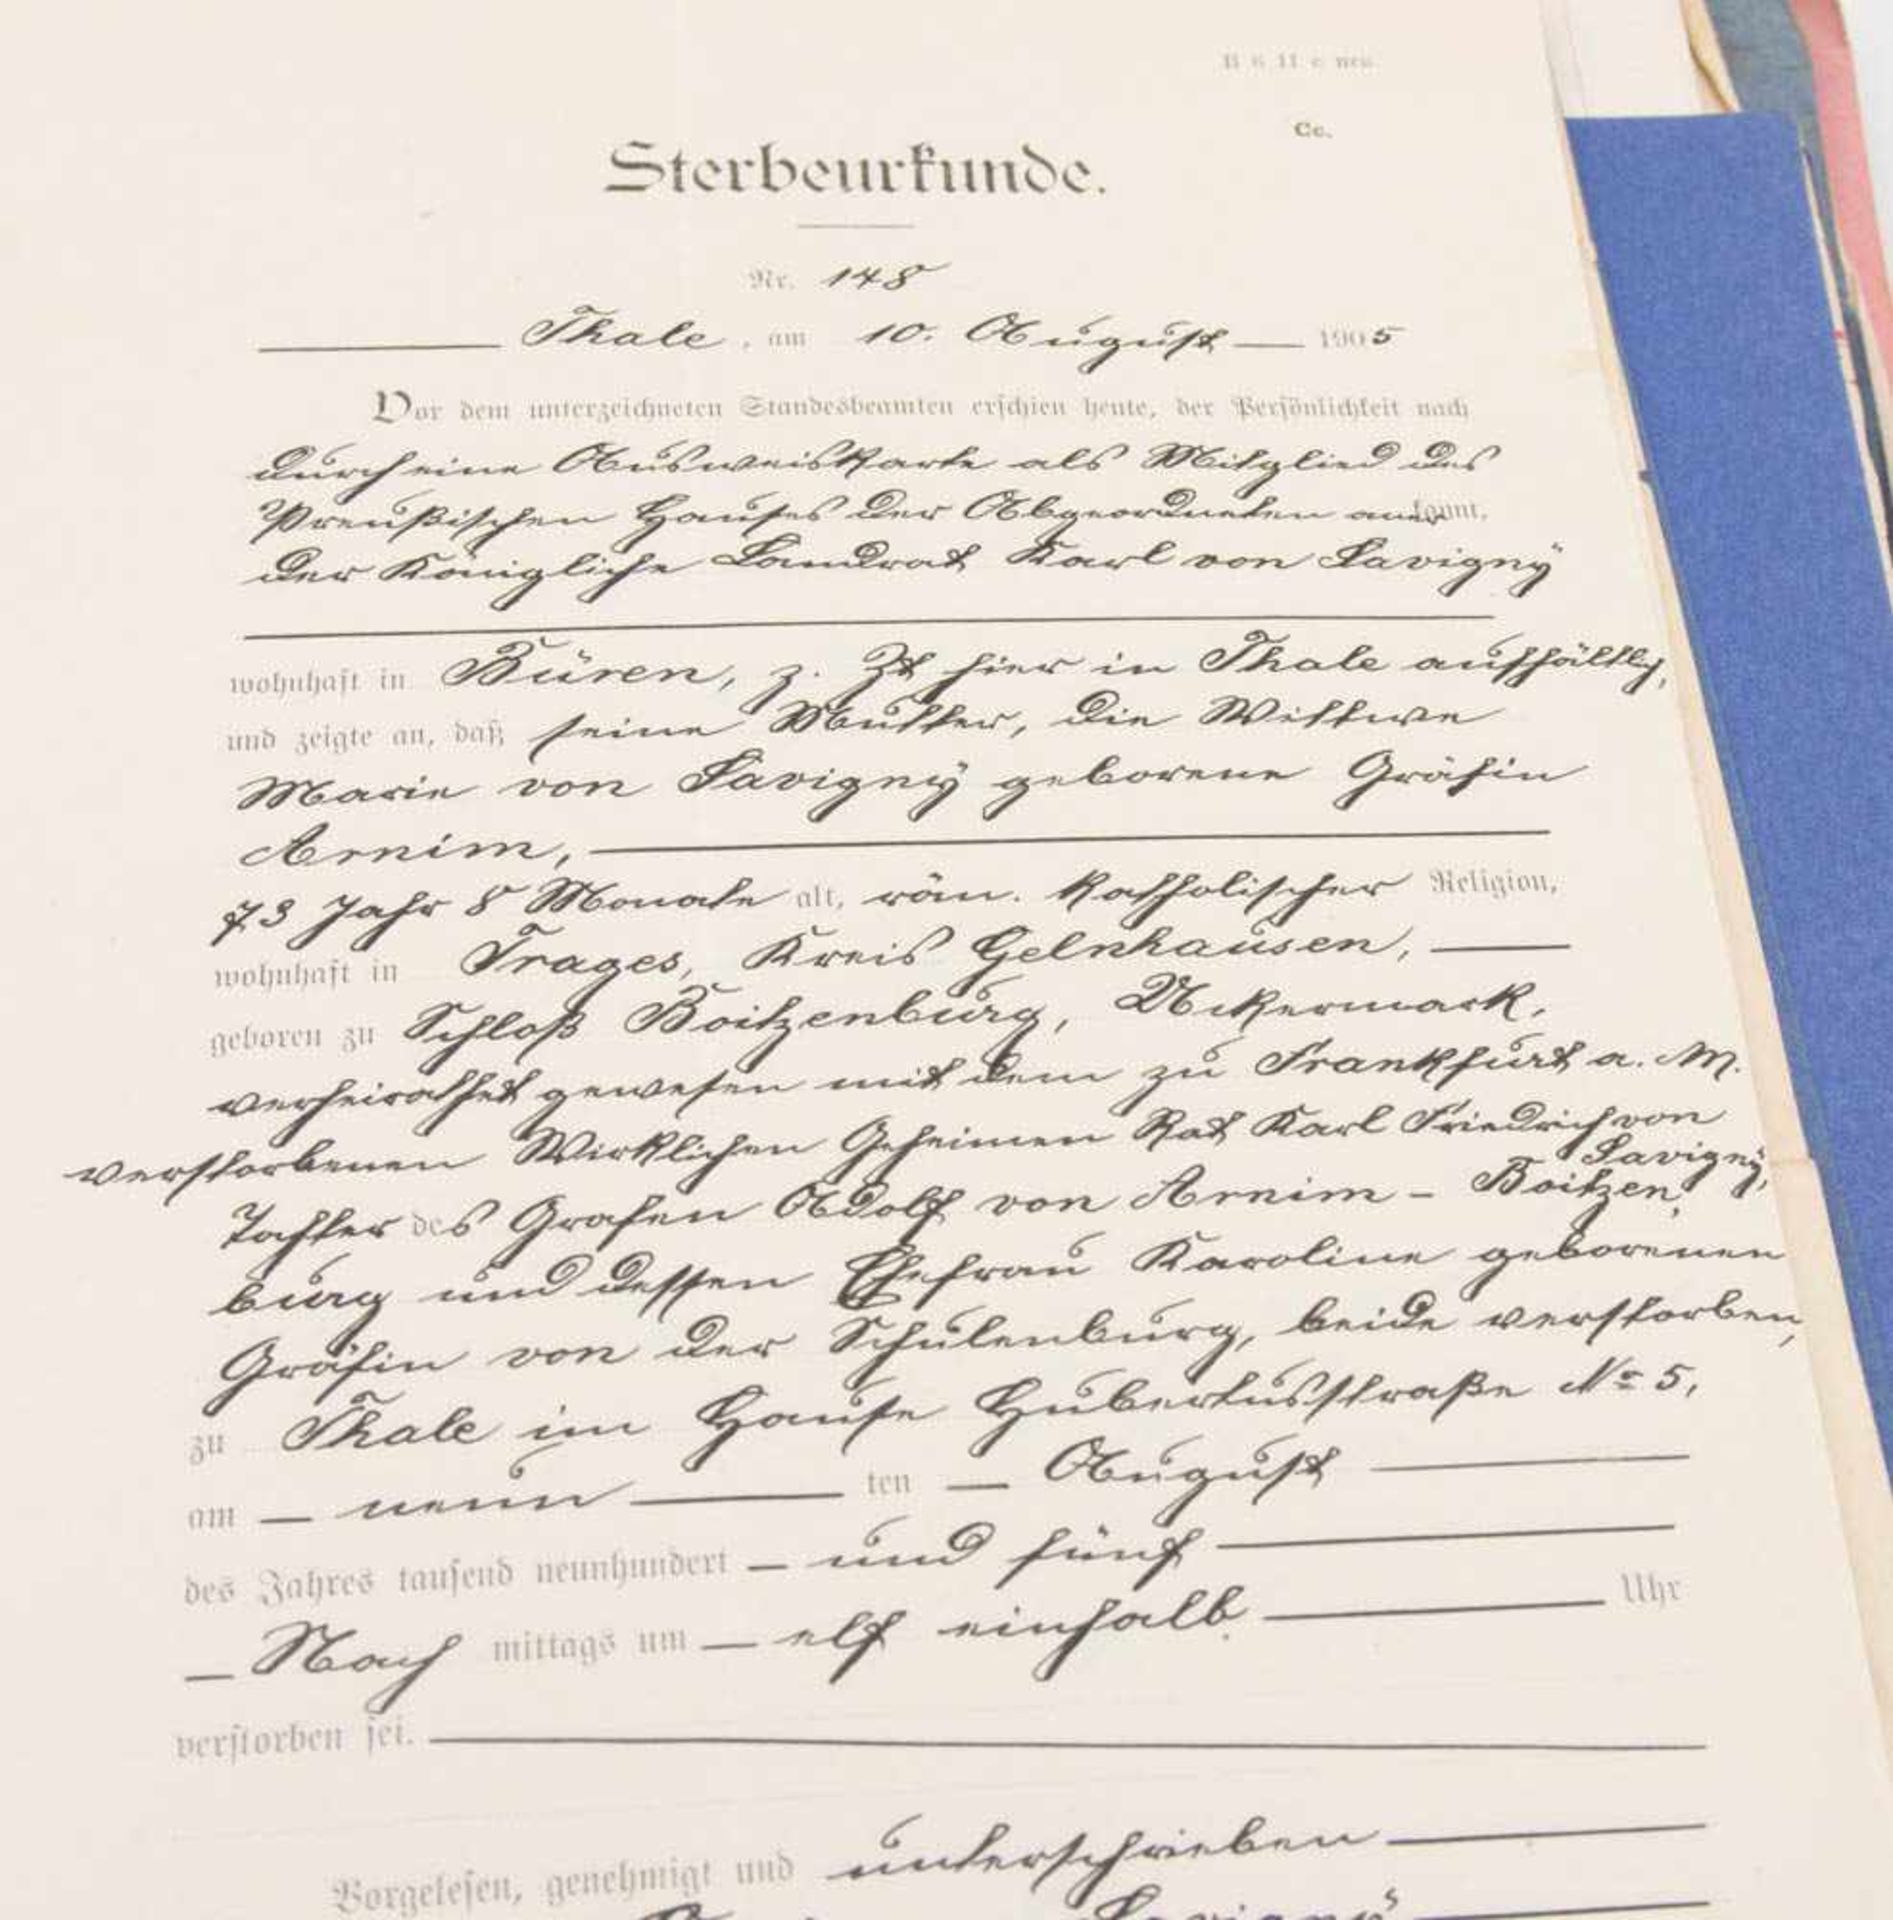 B 6 II c neu
Cc.
Sterbeurkunde.
Nr. 148
Thale, am 10. August 1905
Vor dem unterzeichneten Standesbeamten erschien heute, der Persönlichkeit nach
durch eine Ausweiskarte als Mitglied des
Preußischen Hauses der Abgeordneten anerkannt,
der Königliche Landrat Karl von Savigny
wohnhaft in Büren, z. Zt hier in Thale aufhältlig,
und zeigte an, daß seine Mutter, die Wittwe
Marie von Savigny geborene Gräfin
Arnim,
73 Jahr 8 Monate alt, röm. katholischer Religion,
wohnhaft in Trages, Kreis Gelnhausen,
geboren zu Schloß Boitzenburg, Uckermark,
verheirathet gewesen mit dem zu Frankfurt a. M.
verstorbenen Wirklichen Geheimen Rat Karl Friedrich von
Savigny,
Tochter des Grafen Adolf von Arnim - Boitzen
burg und dessen Ehefrau Karoline geborenen
Gräfin von der Schulenburg, beide verstorben,
zu Thale im Hause Hubertusstraße No 5,
am neun ten August
des Jahres tausend neunhundert und fünf
Nach mittags um elf einhalb Uhr
verstorben sei.
Vorgelesen, genehmigt und unterschrieben
Savigny